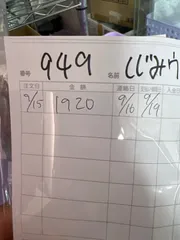 番号 949 名前 くじみウ
注文日 金額 連絡日
9/15 1920 9/16 9/19